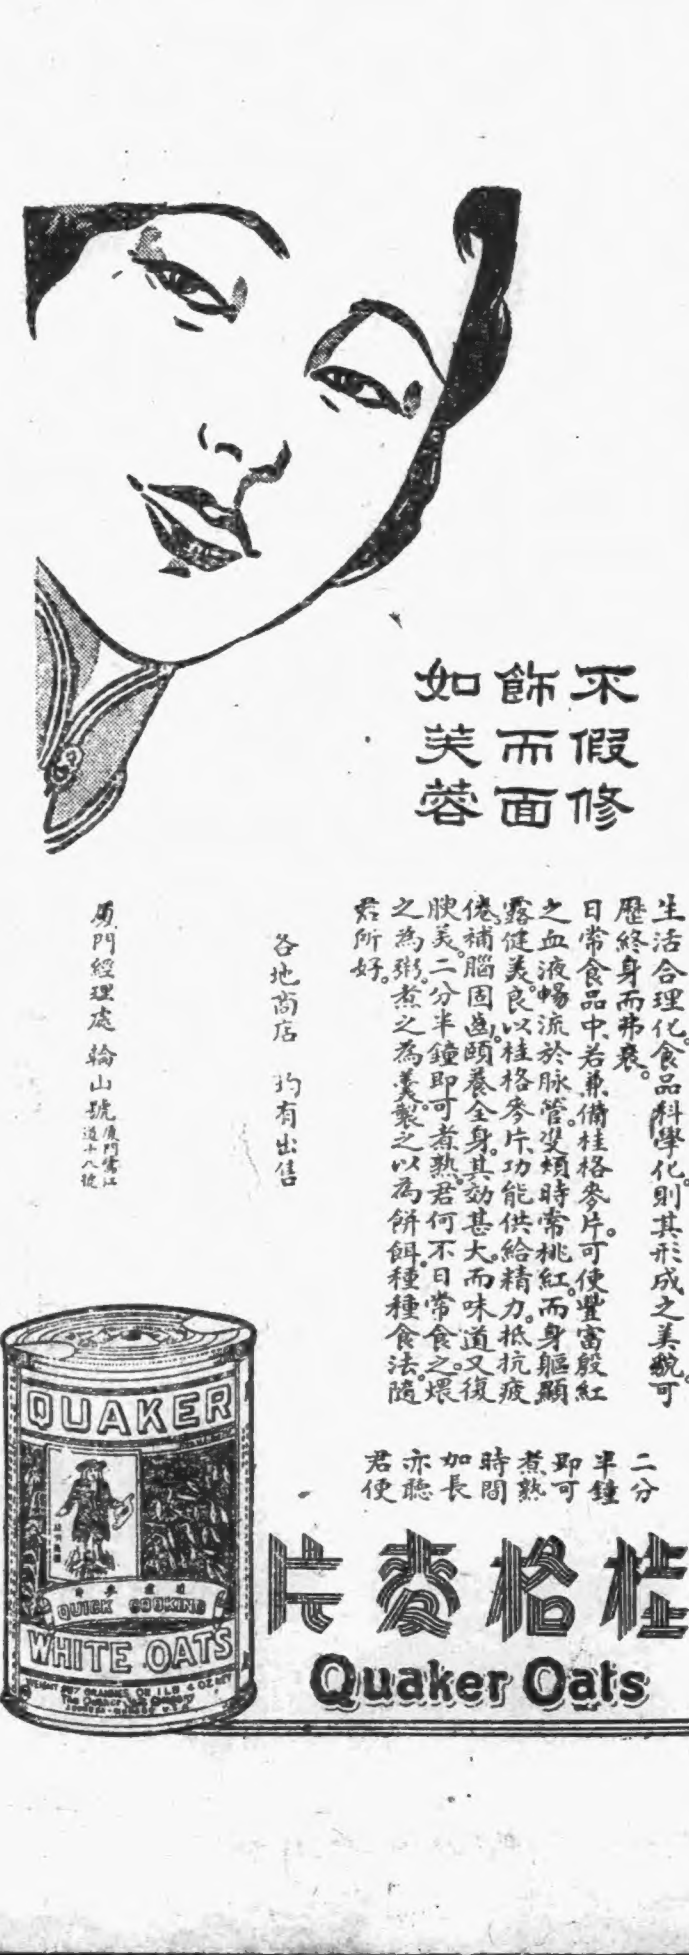 不假修
飾而面
如芙蓉
生活合理化。食品科學化。則其形成之美貌。可
歷終身而弗衰。
日常食品中、若兼備桂格麥片。可使豐富殷紅
之血液暢流於脉管。雙頰時常桃紅。而身軀顯
露健美。良以桂格麥片、功能供給精力。抵抗疲
倦。補腦固齒。頤養全身。其効甚大。而味道又復
腴美。二分半鐘即可煮熟。君何不日常食之。煨
之為粥。煮之為羹。製之以為餅餌。種種食法。隨
君所好。
各地商店 均有出售
厦門經理處 輪山號 厦門鷺江
道十八號
二分
半鐘
即可
煮熟
時間
加長
亦聽
君便
桂格麥片
Quaker Oats
QUAKER
QUICK COOKING
WHITE OATS
WEIGHT 567 GRAMMES OR 1 LB 4 OZ NET
The Quaker Oats Company
U.S.A.